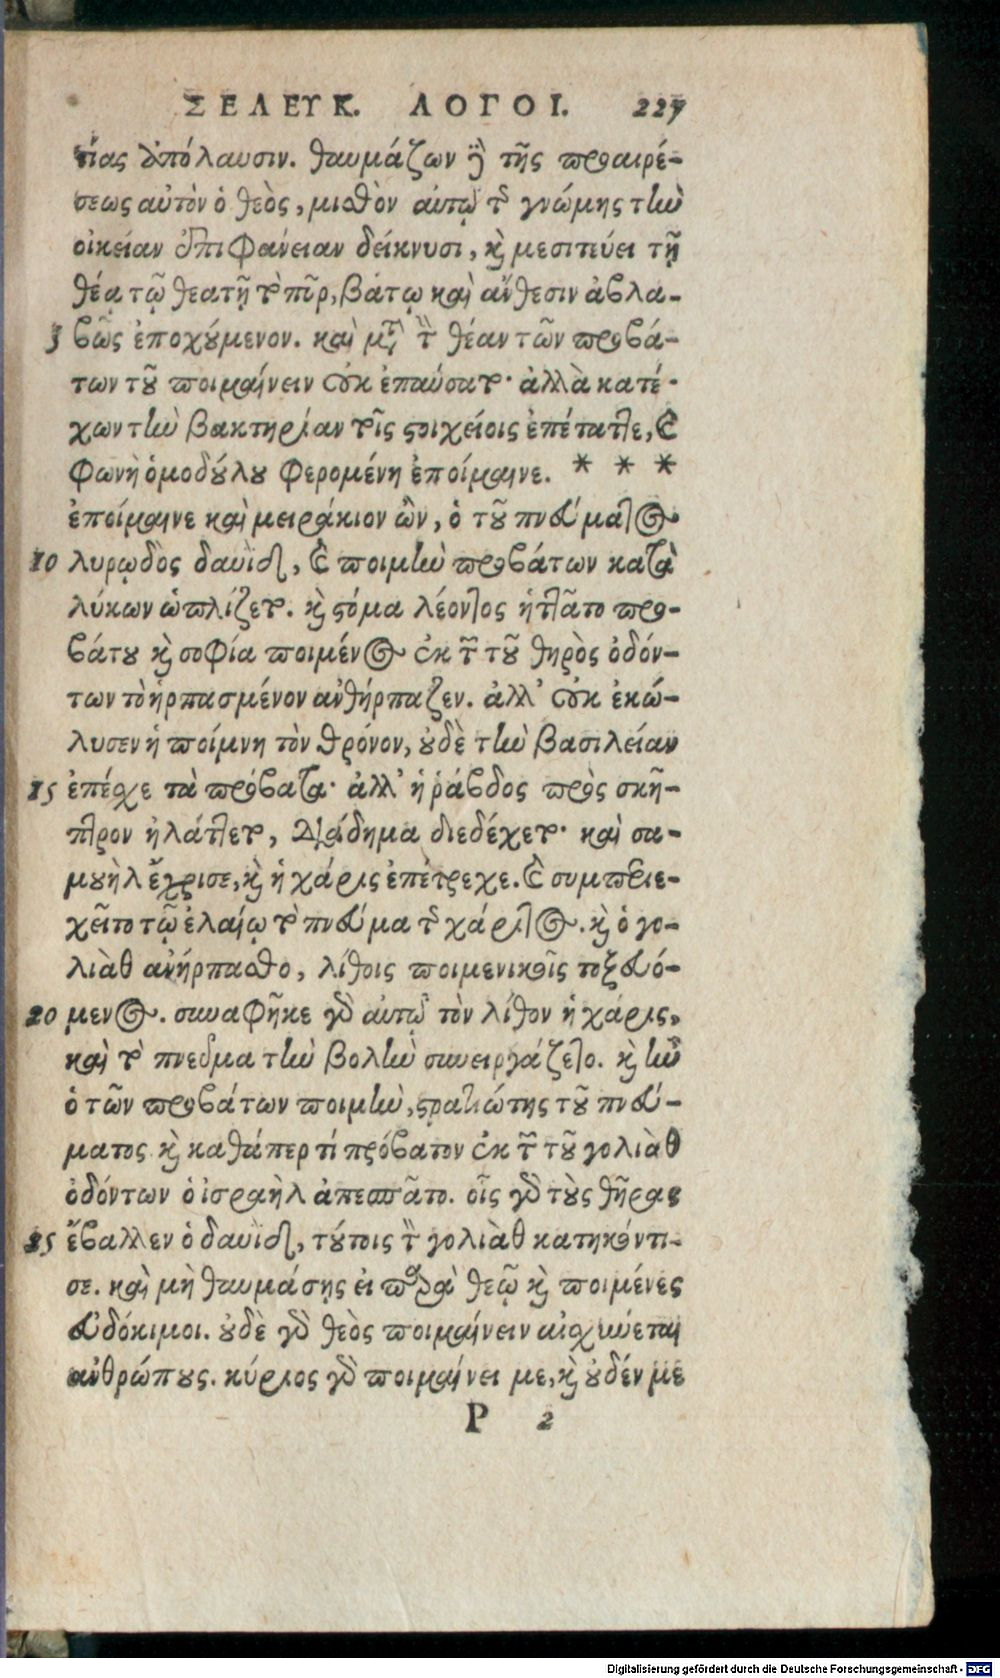 ΣΕΛΕΥΚ. ΛΟΓΟΙ. 227
τίας ἀπόλαυσιν. θαυμάζων ἢ τῆς προαιρέ-
σεως αὐτὸν ὁ θεὸς, μισθὸν αὐτῷ τῆς γνώμης τὴν
οἰκείαν ἐπιφάνειαν δείκνυσι, καὶ μεσιτεύει τῇ
θέᾳ τῷ θεατῇ τὸ πῦρ, βάτῳ καὶ ἄνθεσιν ἀβλα-
5 βῶς ἐποχούμενον. καὶ μετὰ τὴν θέαν τῶν προβά-
των τοῦ ποιμαίνειν οὐκ ἐπαύσατο· ἀλλὰ κατέ-
χων τὴν βακτηρίαν τοῖς στοιχείοις ἐπέταττε, καὶ
φωνὴ ὁμοδούλου φερομένη ἐποίμαινε. * * *
ἐποίμαινε καὶ μειράκιον ὢν, ὁ τοῦ πνεύματος
10 λυρῳδὸς δαυὶδ, καὶ ποιμὴν προβάτων κατὰ
λύκων ὡπλίζετο. καὶ στόμα λέοντος ἡττᾶτο προ-
βάτου καὶ σοφία ποιμένος ἐκ τῶν τοῦ θηρὸς ὀδόν-
των τὸ ἡρπασμένον ἀνθήρπαζεν. ἀλλ' οὐκ ἐκώ-
λυσεν ἡ ποίμνη τὸν θρόνον, οὐδὲ τὴν βασιλείαν
15 ἐπέσχε τὰ πρόβατα· ἀλλ' ἡ ῥάβδος πρὸς σκῆ-
πτρον ἠλάττετο, διάδημα διεδέχετο· καὶ σα-
μουὴλ ἔχρισε, καὶ ἡ χάρις ἐπέτρεχε. καὶ συμπεριε-
χεῖτο τῷ ἐλαίῳ τὸ πνεῦμα τῆς χάριτος. καὶ ὁ γο-
λιὰθ ἀνήρπαστο, λίθοις ποιμενικοῖς τοξευό-
20 μενος. συναφῆκε γὰρ αὐτῷ τὸν λίθον ἡ χάρις,
καὶ τὸ πνεῦμα τὴν βολὴν συνειργάζετο. καὶ ἦν
ὁ τῶν προβάτων ποιμὴν, στρατιώτης τοῦ πνεύ-
ματος καὶ καθάπερ τί πρόβατον ἐκ τῶν τοῦ γολιὰθ
ὀδόντων ὁ ἰσραὴλ ἀπεσπᾶτο. οἷς γὰρ τοὺς θῆρας
25 ἔβαλλεν ὁ δαυὶδ, τούτοις τὸν γολιὰθ κατηκόντι-
σε. καὶ μὴ θαυμάσῃς εἰ παρὰ θεῷ καὶ ποιμένες
εὐδόκιμοι. οὐδὲ γὰρ θεὸς ποιμαίνειν αἰσχύνεται
ἀνθρώπους. κύριος γὰρ ποιμαίνει με, καὶ οὐδέν με
P 2
Digitalisierung gefördert durch die Deutsche Forschungsgemeinschaft - DFG